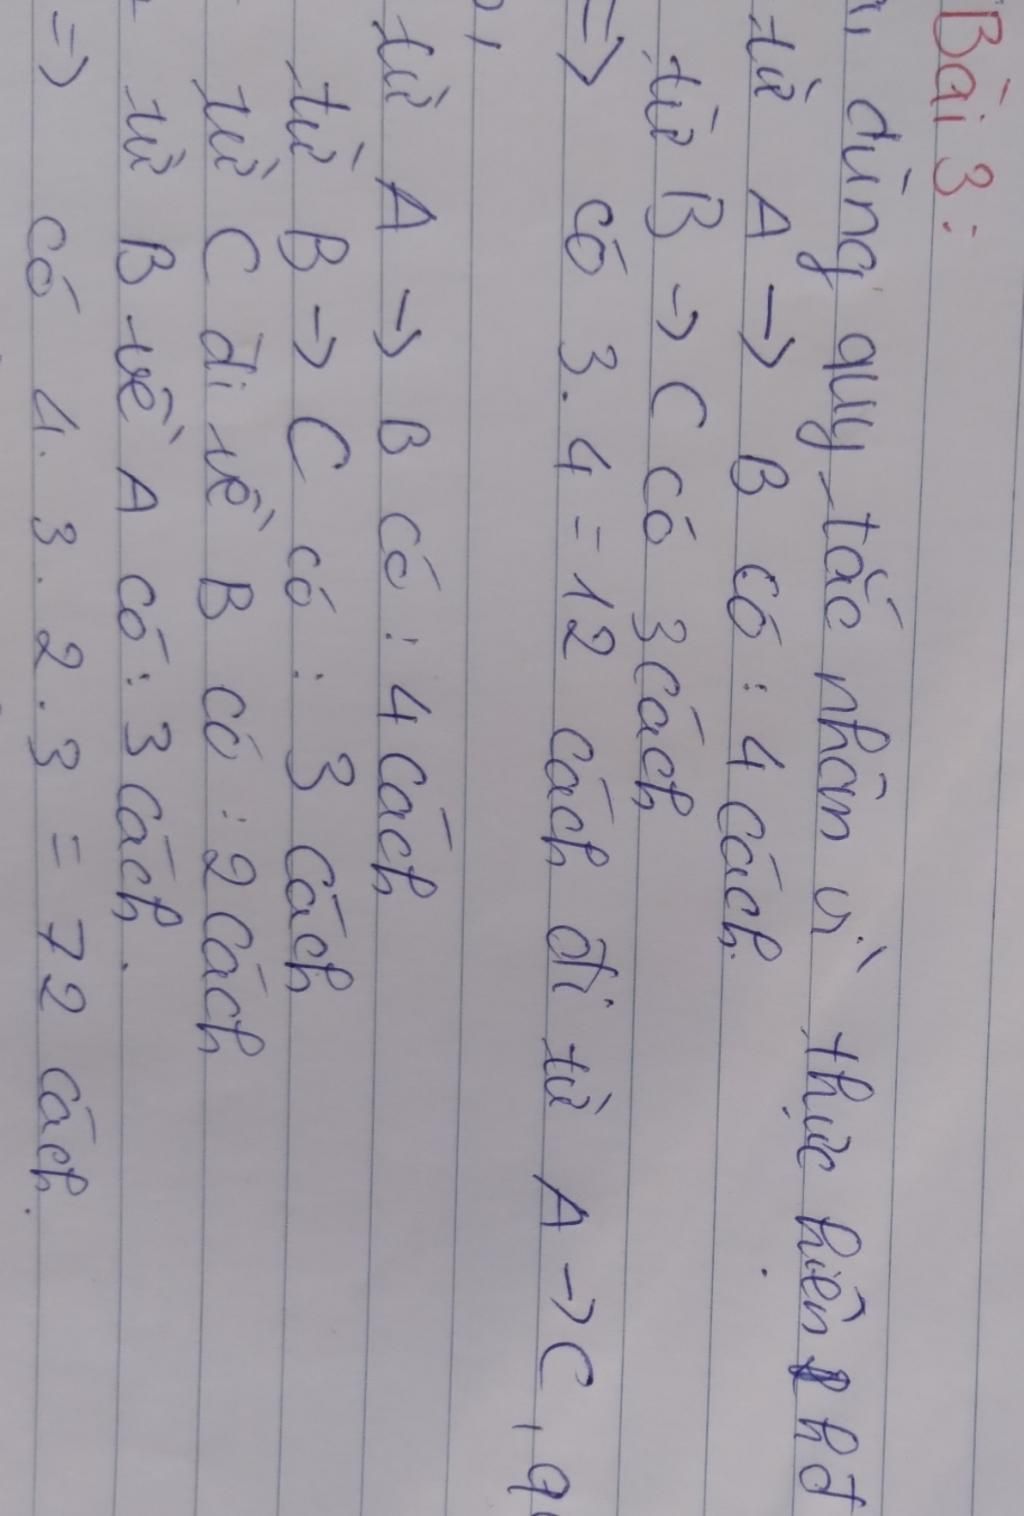 Bài 3:
a, dùng quy tắc nhân vì thực hiện 2 hđ
từ A → B có : 4 cách.
từ B → C có 3 cách
=> có 3.4 = 12 cách đi từ A → C,
b,
từ A → B có : 4 cách
từ B → C có : 3 cách
từ C đi về B có : 2 cách
từ B về A có : 3 cách.
=> có 4.3.2.3 = 72 cách.